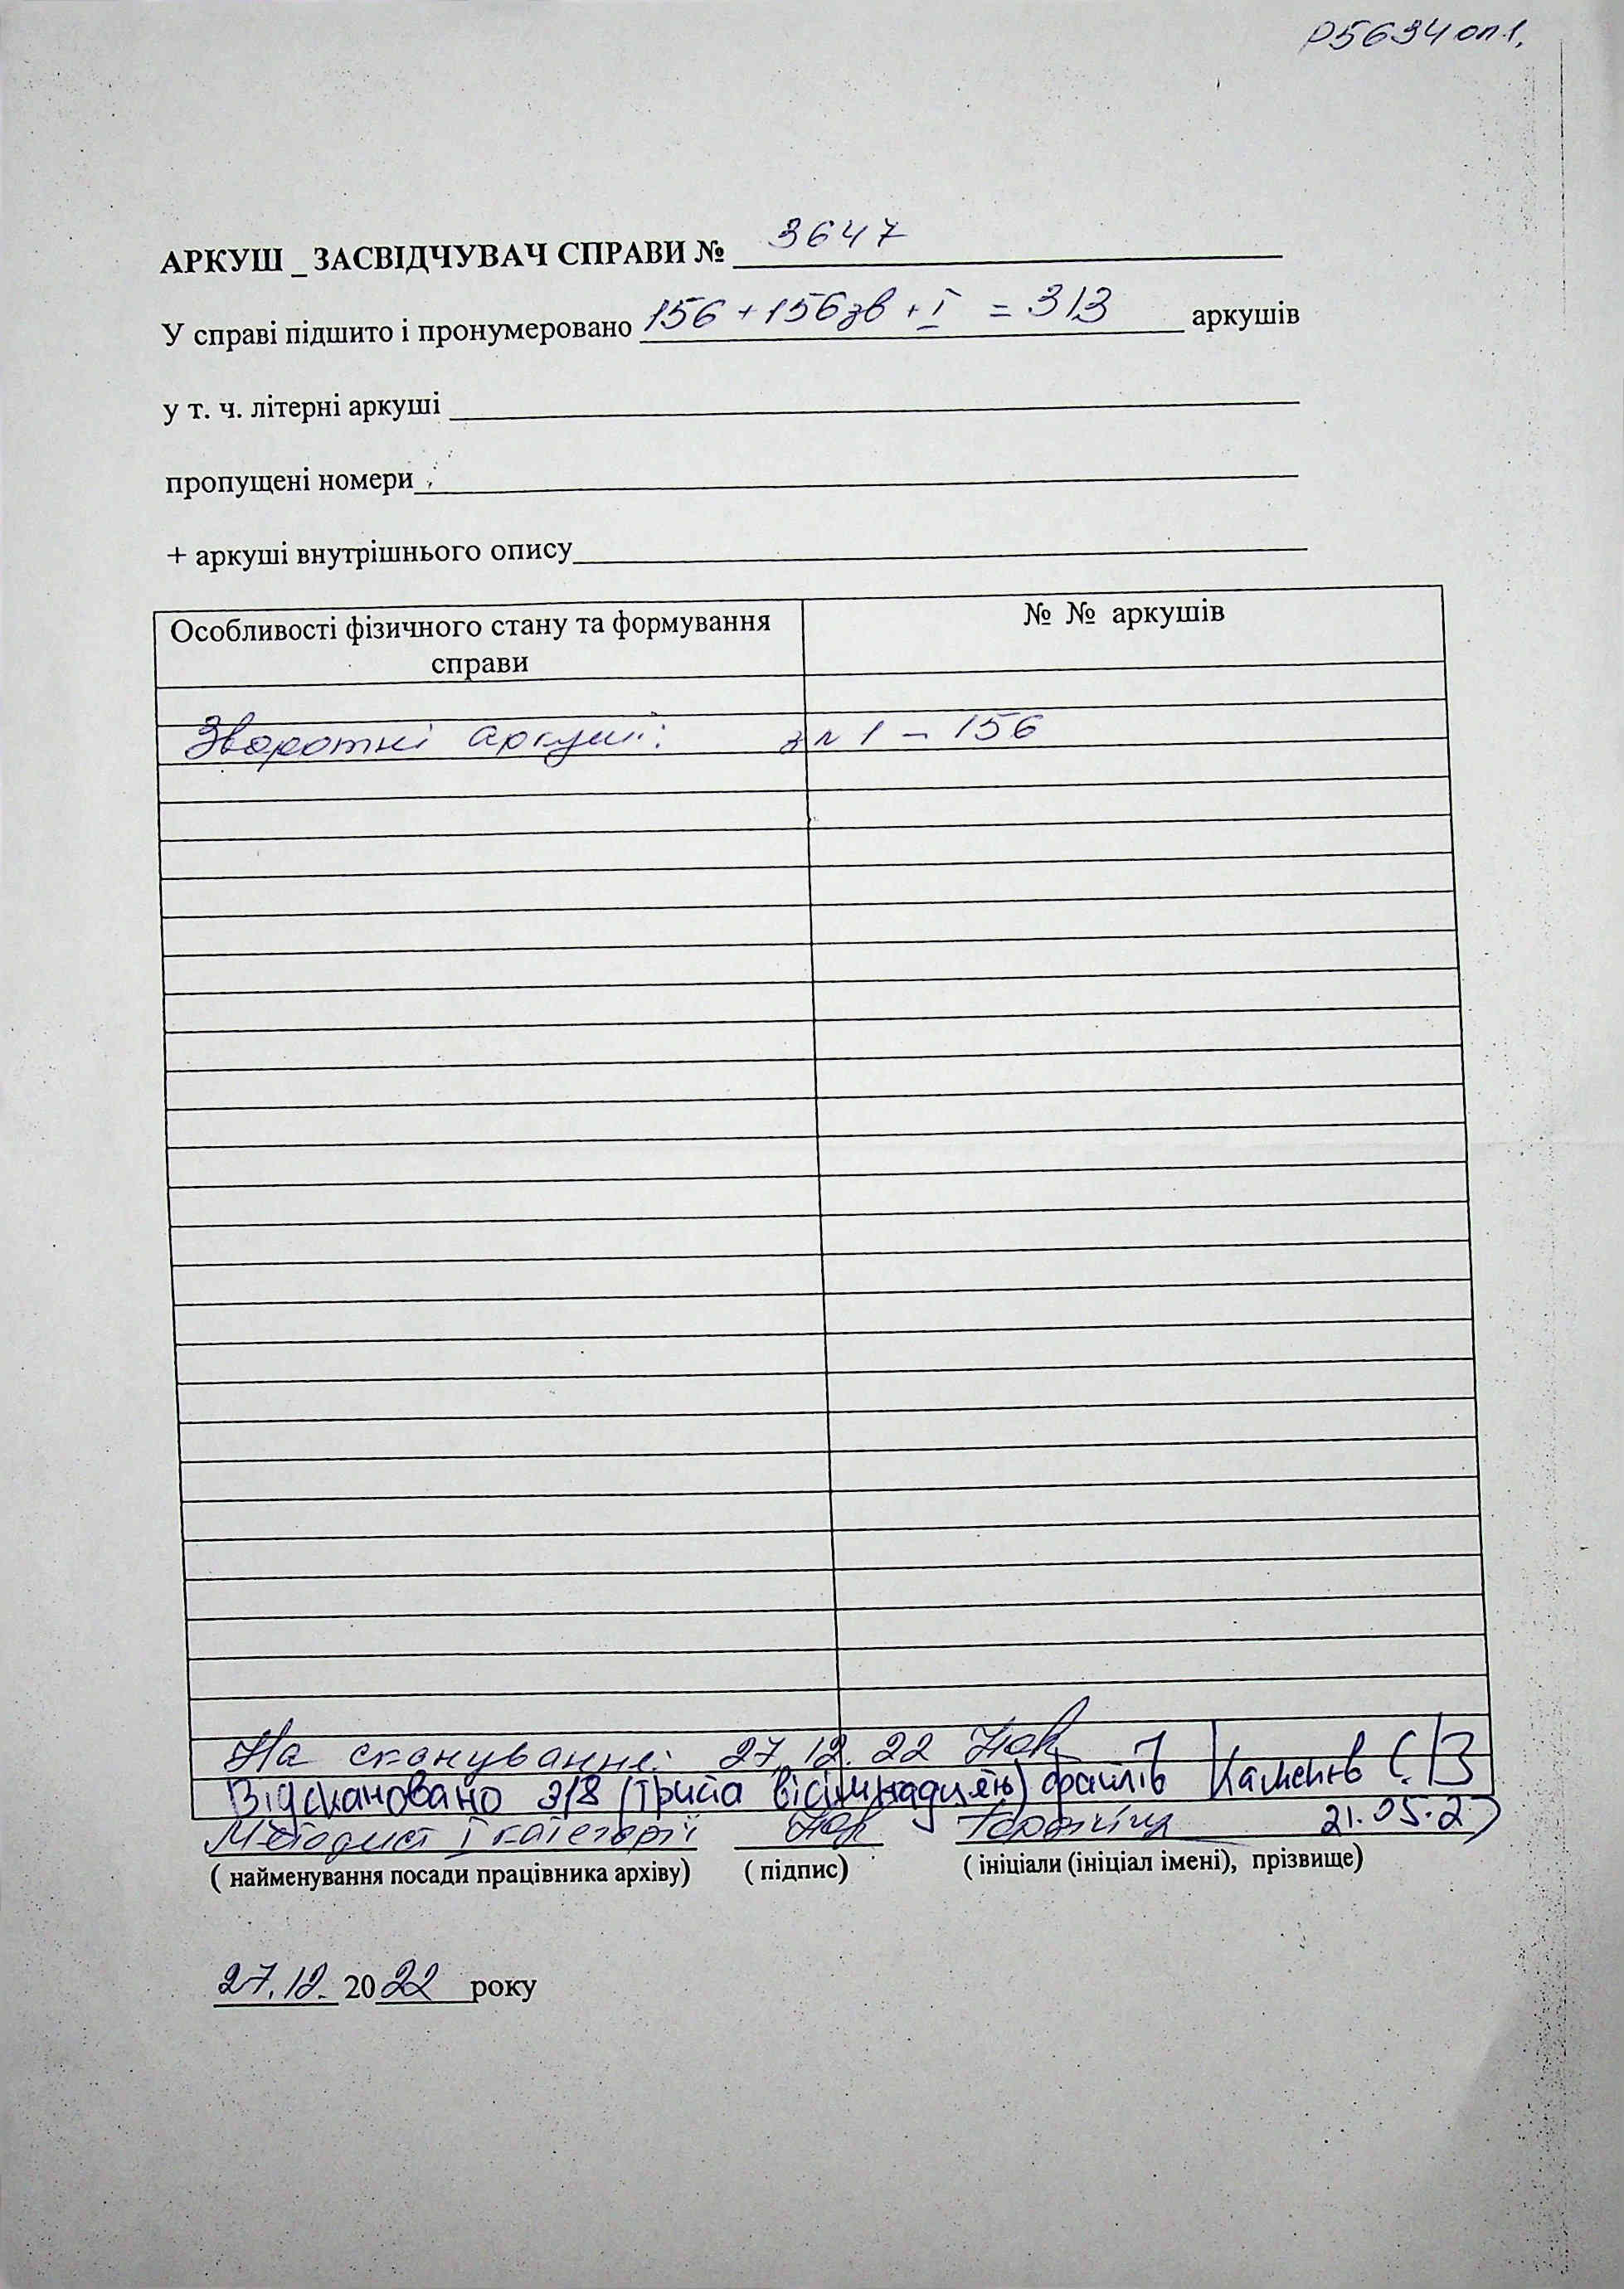 Р5634 оп1,
АРКУШ _ ЗАСВІДЧУВАЧ СПРАВИ № 3647
У справі підшито і пронумеровано 156 + 156зв + I = 313 аркушів
у т. ч. літерні аркуші
пропущені номери
+ аркуші внутрішнього опису
Особливості фізичного стану та формування справи № № аркушів
Зворотні аркуші: 1 – 156
На сканування: 27.12.22
Відскановано 318 (триста вісімнадцять) файлів
Методист I категорії 21.05.2
( найменування посади працівника архіву) ( підпис) ( ініціали (ініціал імені), прізвище)
27.12. 2022 року